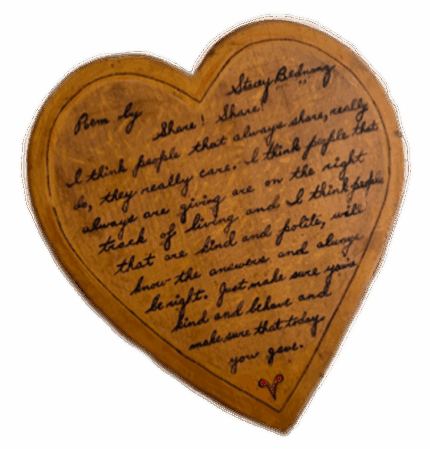 Poem by Stacey Bednarz
Share! Share!
I think people that always share, really
do, they really care. I think people that
always are giving are on the right
track of living and I think people
that are kind and polite, will
know the answers and always
be right. Just make sure you're
kind and behave and
make sure that today
you gave.